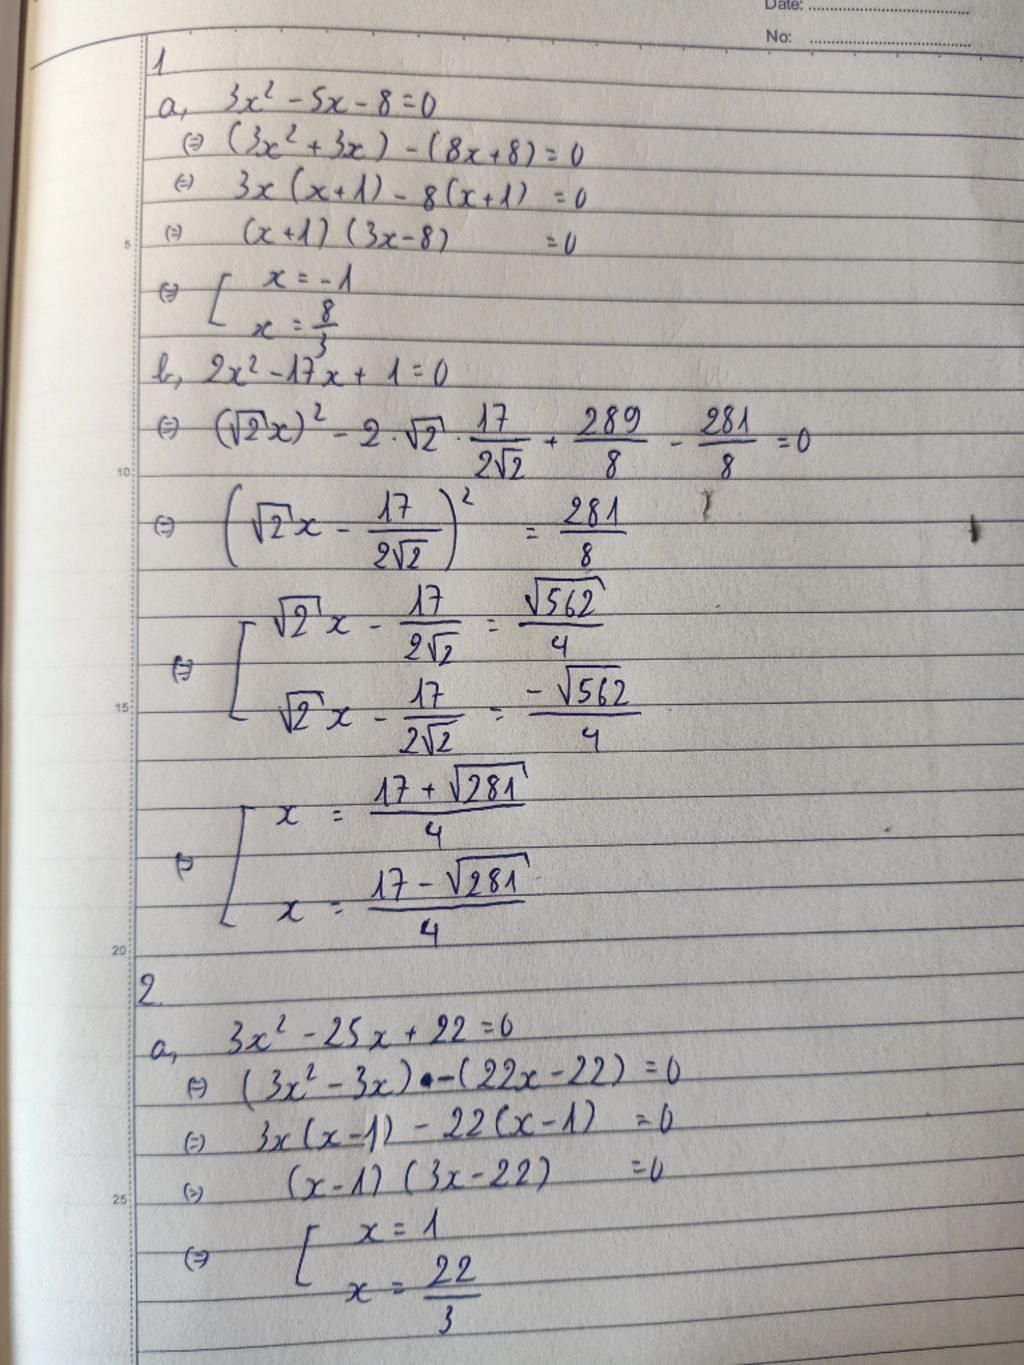 Date: ..............................
No: ..............................
1
a, 3x² - 5x - 8 = 0
(=) (3x² + 3x) - (8x + 8) = 0
(=) 3x(x+1) - 8(x+1) = 0
(=) (x+1)(3x-8) = 0
(=) [ x = -1
x = 8/3
b, 2x² - 17x + 1 = 0
(=) (√2x)² - 2 · √2 · 17/2√2 + 289/8 - 281/8 = 0
(=) (√2x - 17/2√2)² = 281/8
(=) [ √2x - 17/2√2 = √562/4
√2x - 17/2√2 = -√562/4
(=) [ x = 17 + √281/4
x = 17 - √281/4
2
a, 3x² - 25x + 22 = 0
(=) (3x² - 3x) - (22x - 22) = 0
(=) 3x(x-1) - 22(x-1) = 0
(=) (x-1)(3x-22) = 0
(=) [ x = 1
x = 22/3
5
10
15
20
25